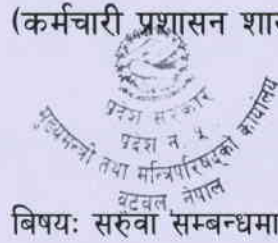 (कर्मचारी प्रशासन शा
प्रदेश सरकार
प्रदेश नं. ५
मुख्यमन्त्री तथा मन्त्रिपरिषद्को कार्यालय
बुटवल, नेपाल
बिषयः सरुवा सम्बन्धमा